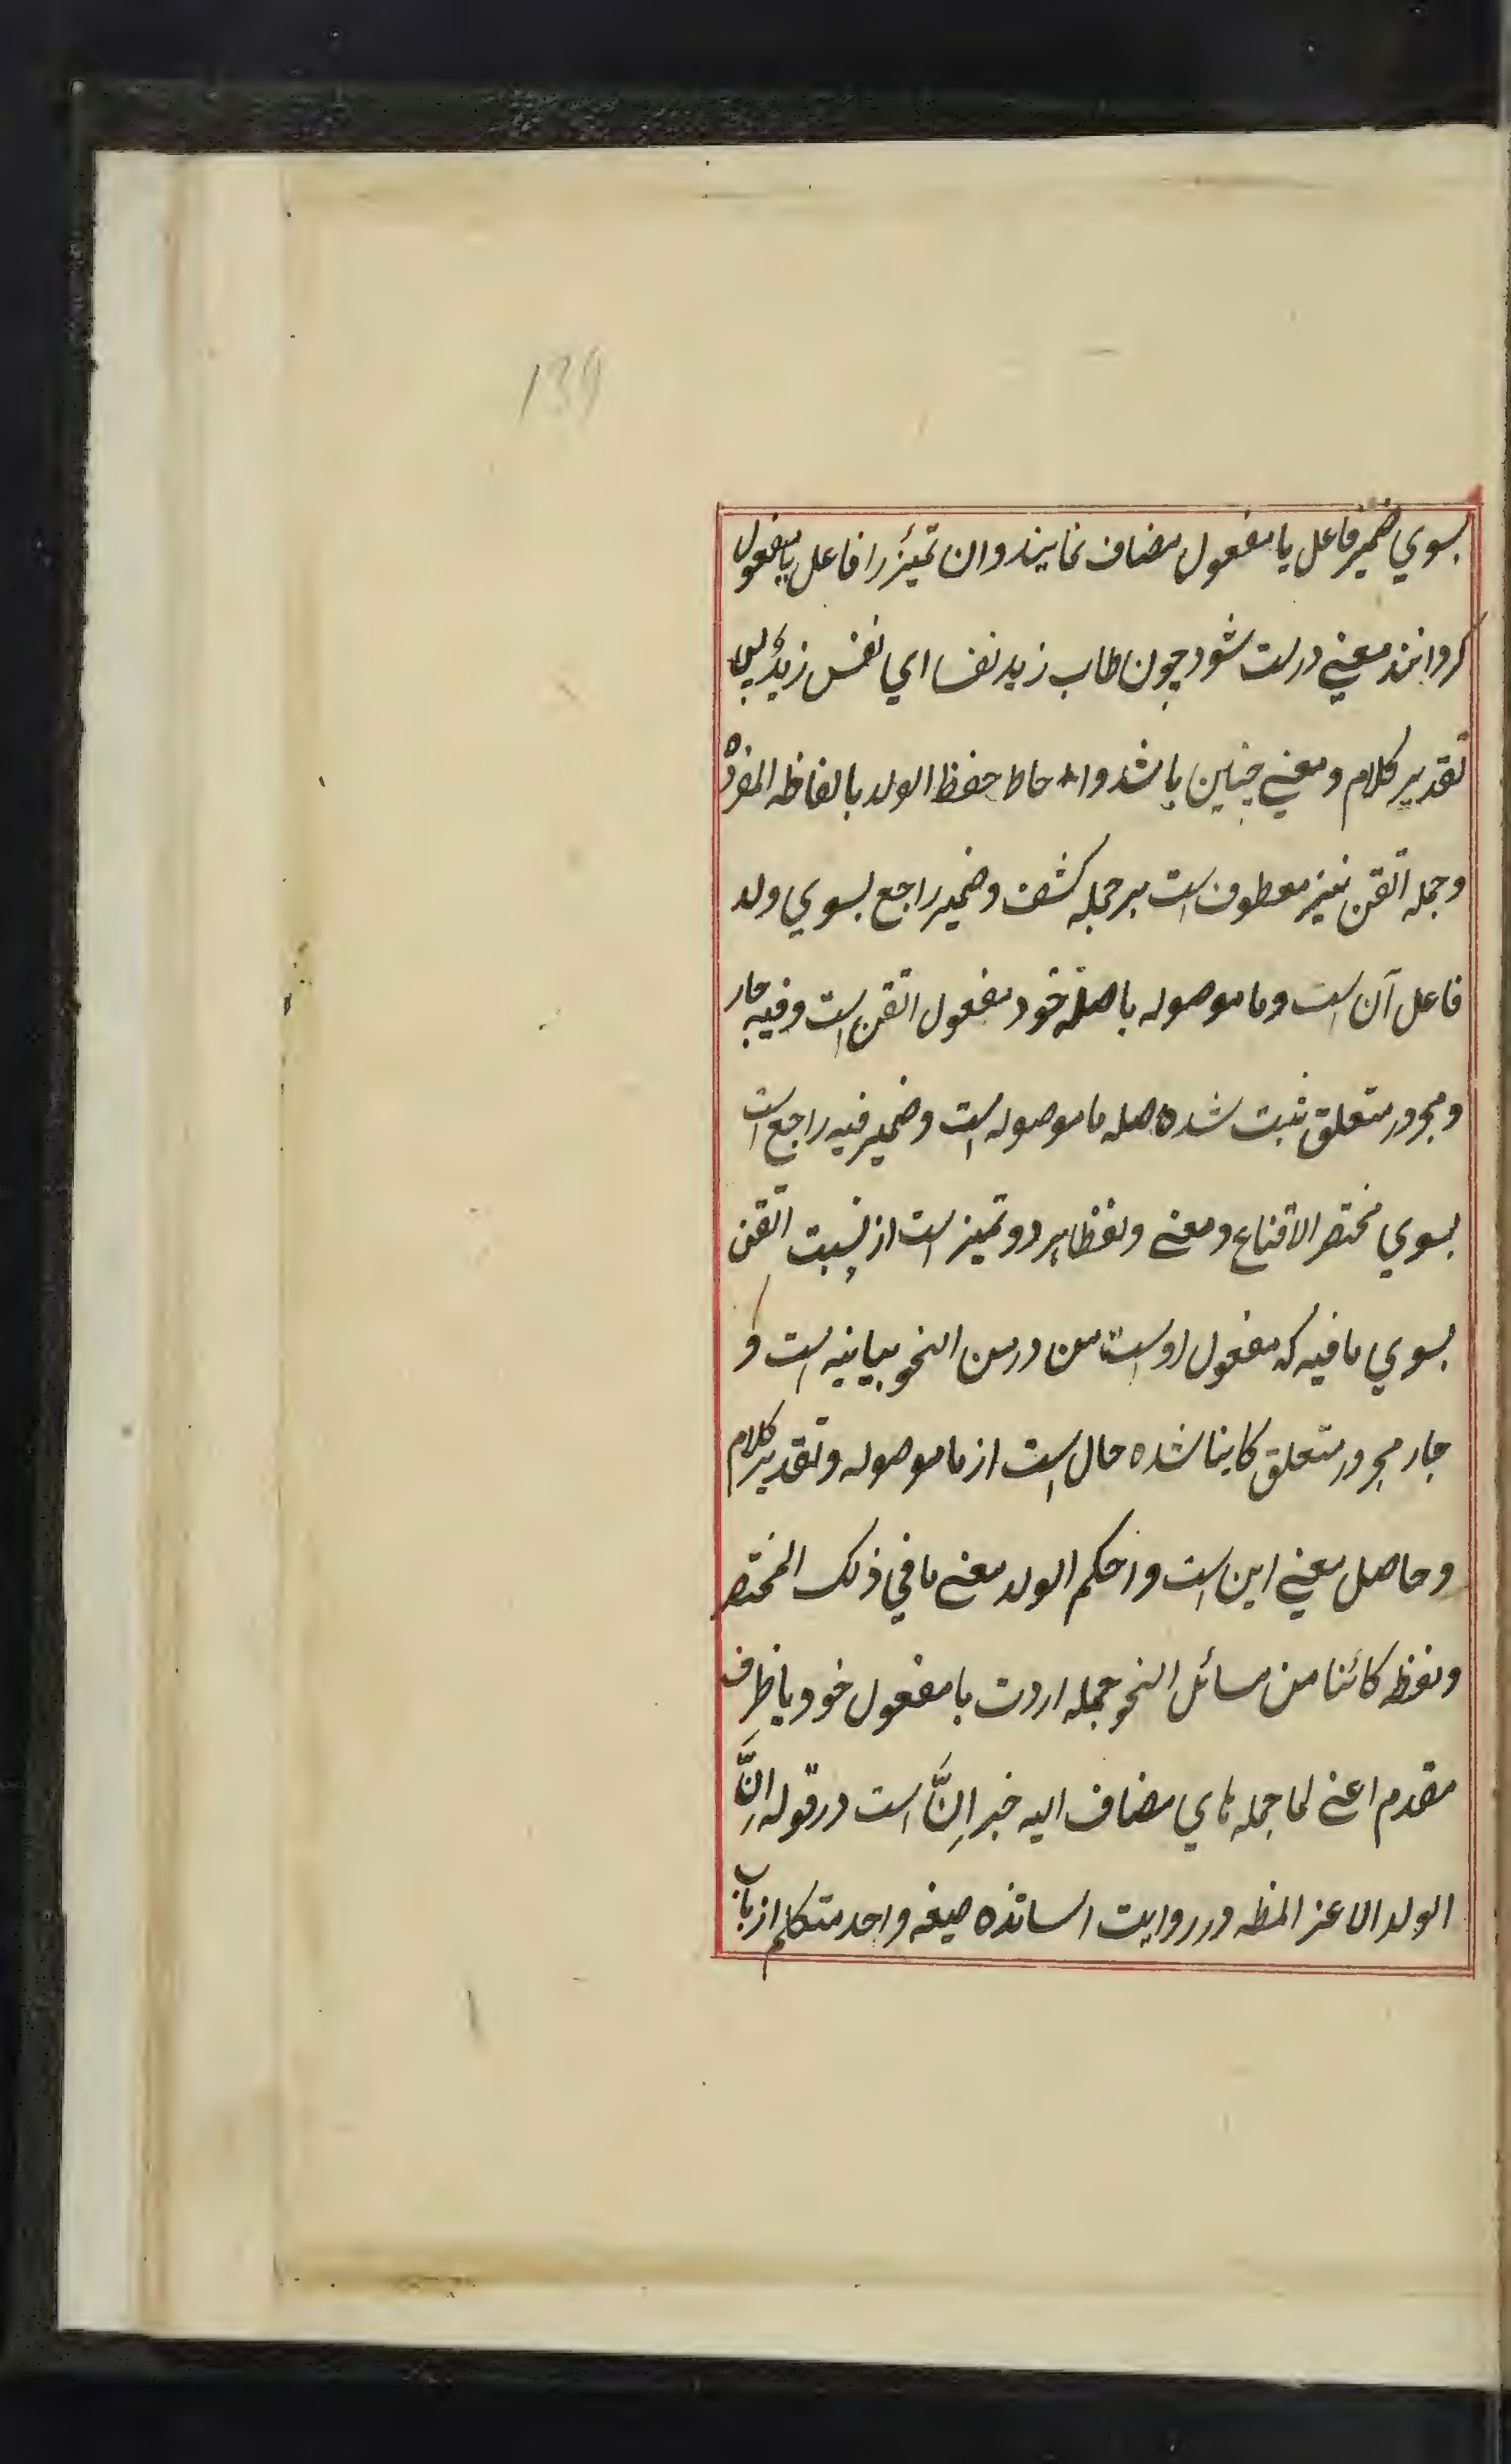 139
بسوي ضمير فاعل يا مفعول مضاف نمايند وان تميز را فاعل يا مفعول
كردانند معني درست شود چون طاب زيد نفسا اي نفس زيد پس
تقدير كلام ومعني چنين باشد واحاط حفظ الولد بالفاظه المفرده
وجمله اتقن نيز معطوف است بر جمله كشف وضمير راجع بسوي ولد
فاعل آن است وما موصوله با صله خود مفعول اتقن است وفيه جار
ومجرور متعلق ثبت شده صله ما موصوله است وضمير فيه راجع است
بسوي مختصر الاقناع ومعني ولفظا هر دو تميز است از نسبت اتقن
بسوي ما فيه كه مفعول اوست من در من النحو بيانيه است و
جار مجرور متعلق كاينا شده حال است از ما موصوله وتقدير كلام
وحاصل معني اين است واحكم الولد معني ما في ذلك المختصر
ولفظه كائنا من مسائل النحو جمله اردت با مفعول خود يا ظرف
مقدم اعني لما جمله ٔاي مضاف اليه خبر اِنَّ است در قوله اِنَّ
الولد الاعز المظه در روايت اساتذه صيغه واحد متكلم از باب